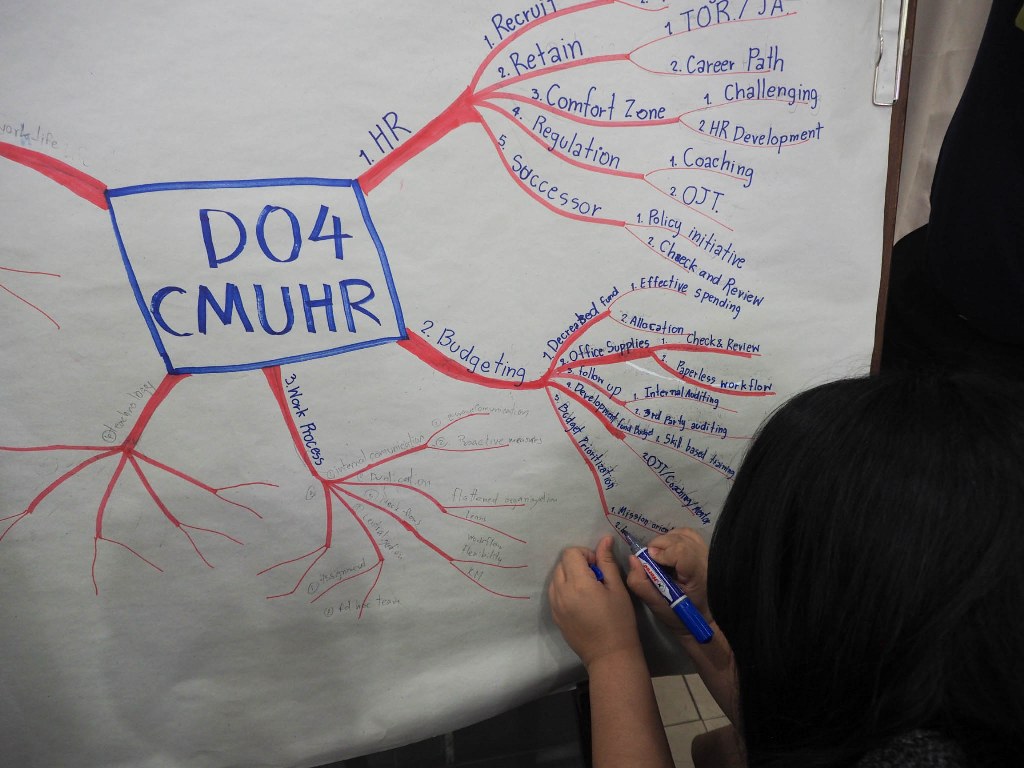 DO4
CMUHR
1. HR
1. Recruit
2. Retain
1 TOR / JA.
2. Career Path
3. Comfort Zone
1. Challenging
2 HR Development
4. Regulation
1. Coaching
2. OJT.
5. Successor
1. Policy initiative
2. Check and Review
2. Budgeting
1. Decreased fund
1. Effective
spending
2. Allocation
2. Office Supplies
1. Check & Review
2. Paperless workflow
3. follow up
1. Internal Auditing
2. 3rd Party auditing
4. Development fund Budget
1. Skill based training
2. OJT/Coaching/Mentor
5. Budget Prioritization
1. Mission
3. Work Process
internal communication
Proactive
Duplication
flattened organization
flexibility
technology